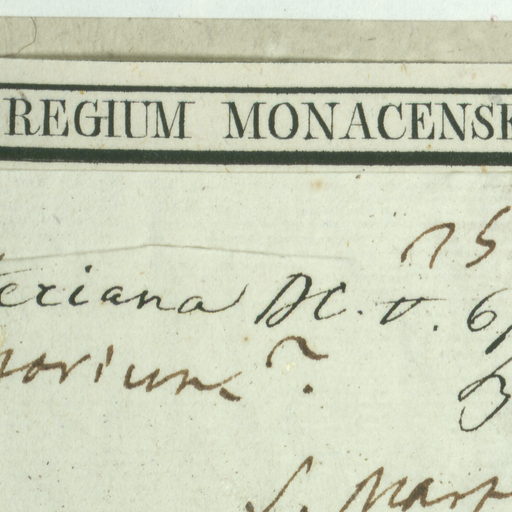 REGIUM MONACENSE
75
teriana DC. v. 6
orium ?
B
S. Mart